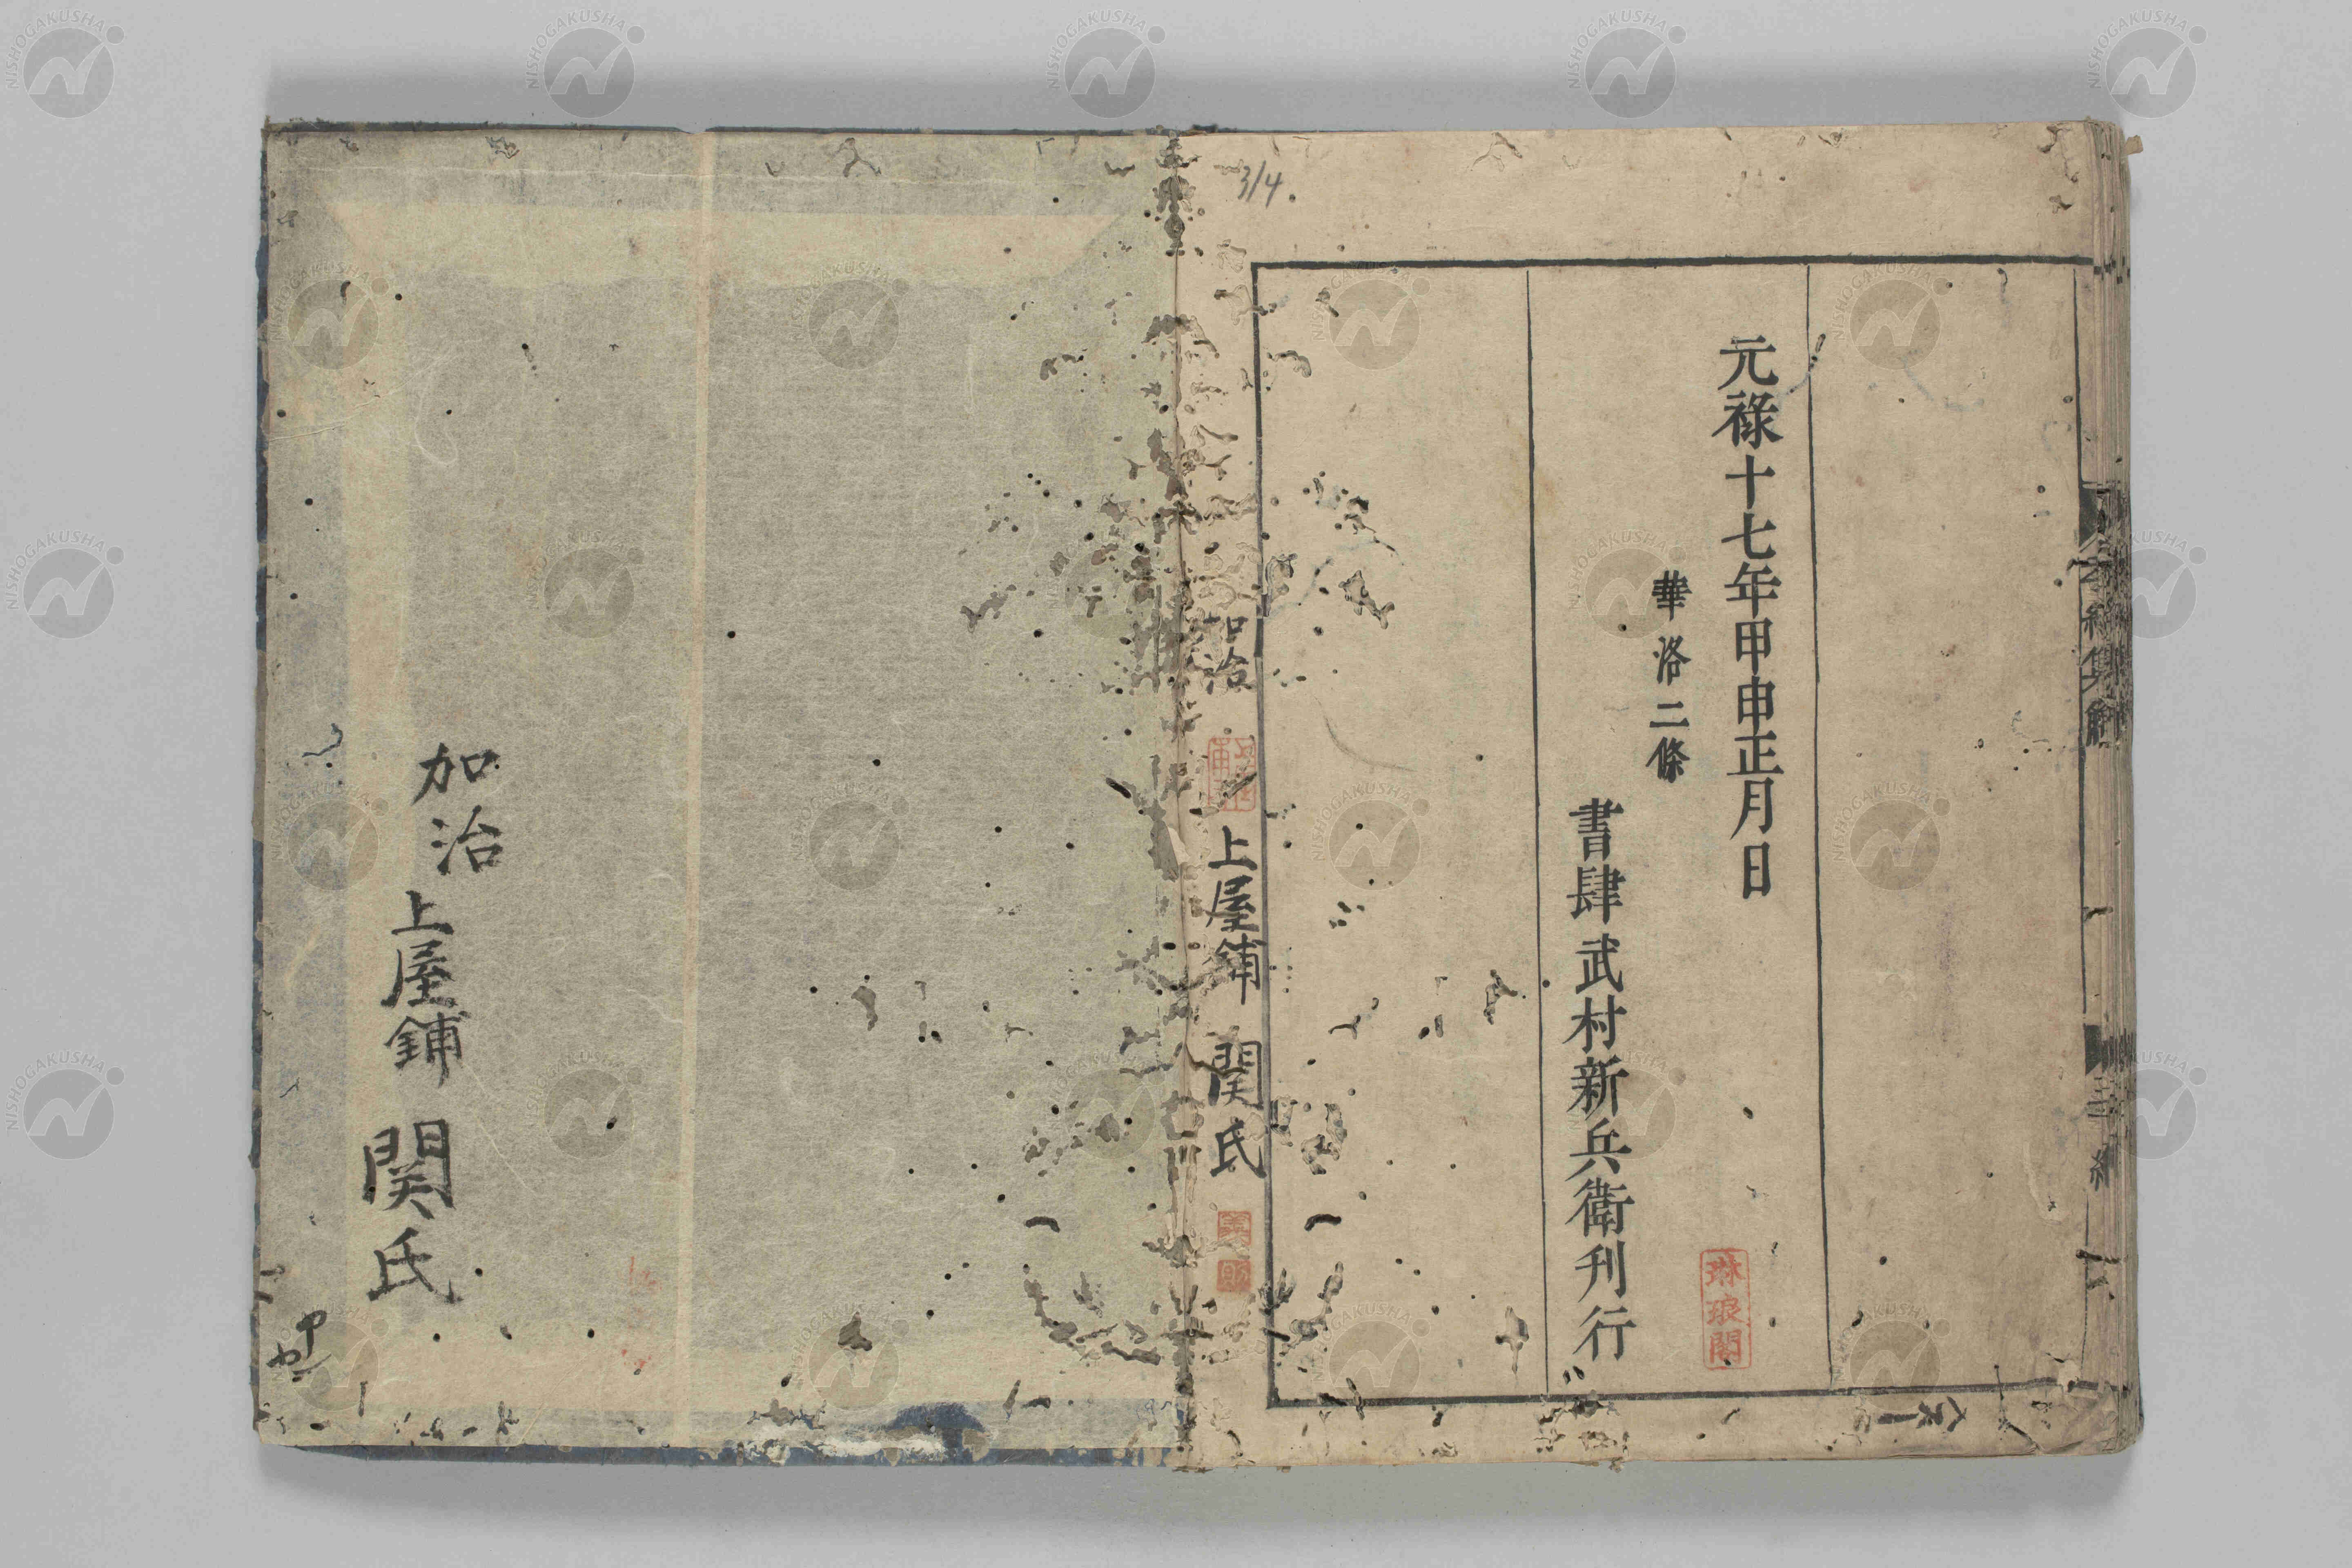 元祿十七年甲申正月日
華洛二條
書肆武村新兵衛刊行
琳琅閣
3/4.
加治
上屋鋪
関氏
加治
上屋鋪
関氏
NISHOGAKUSHA